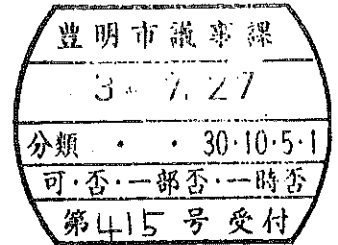 豊明市議事課
3. 7. 27
分類 ・ ・ 30・10・5・1
可・否・一部否・一時否
第415号受付